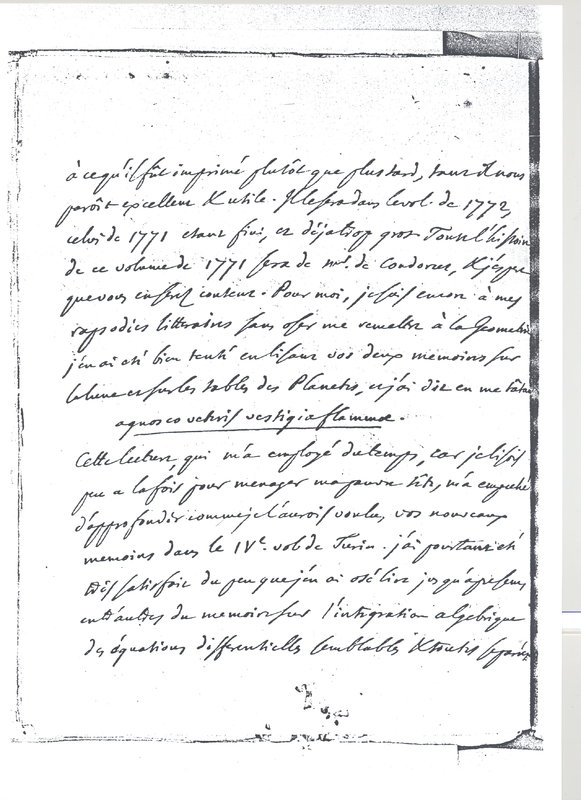 à ce qu'il fût imprimé plutôt que plus tard, tant il nous
paroît excellent & utile. Il sera dans le vol. de 1772,
celui de 1771 etant fini, et déja trop gros. Toute l'histoire
de ce volume de 1771 sera de Mr. de Condorcet, & j'espere
que vous en serez content. Pour moi, je suis encore à mes
rapsodies litteraires sans oser me remettre à la Geometrie
j'en ai eté bien tenté en lisant vos deux memoires sur
la lune et sur les tables des Planetes, et j'ai dit en me tâtant
agnosco veteris vestigia flammæ.
Cette lecture, qui m'a employé du temps, car je lisois
peu a la fois pour menager ma pauvre tête, m'a empeché
d'approfondir comme je l'aurois voulu, vos nouveaux
memoires dans le IVe. vol. de Turin. j'ai pourtant eté
très satisfait du peu que j'en ai osé lire jusqu'à present
entr'autres du memoire sur l'intégration algébrique
des équations differentielles semblables & toutes separées